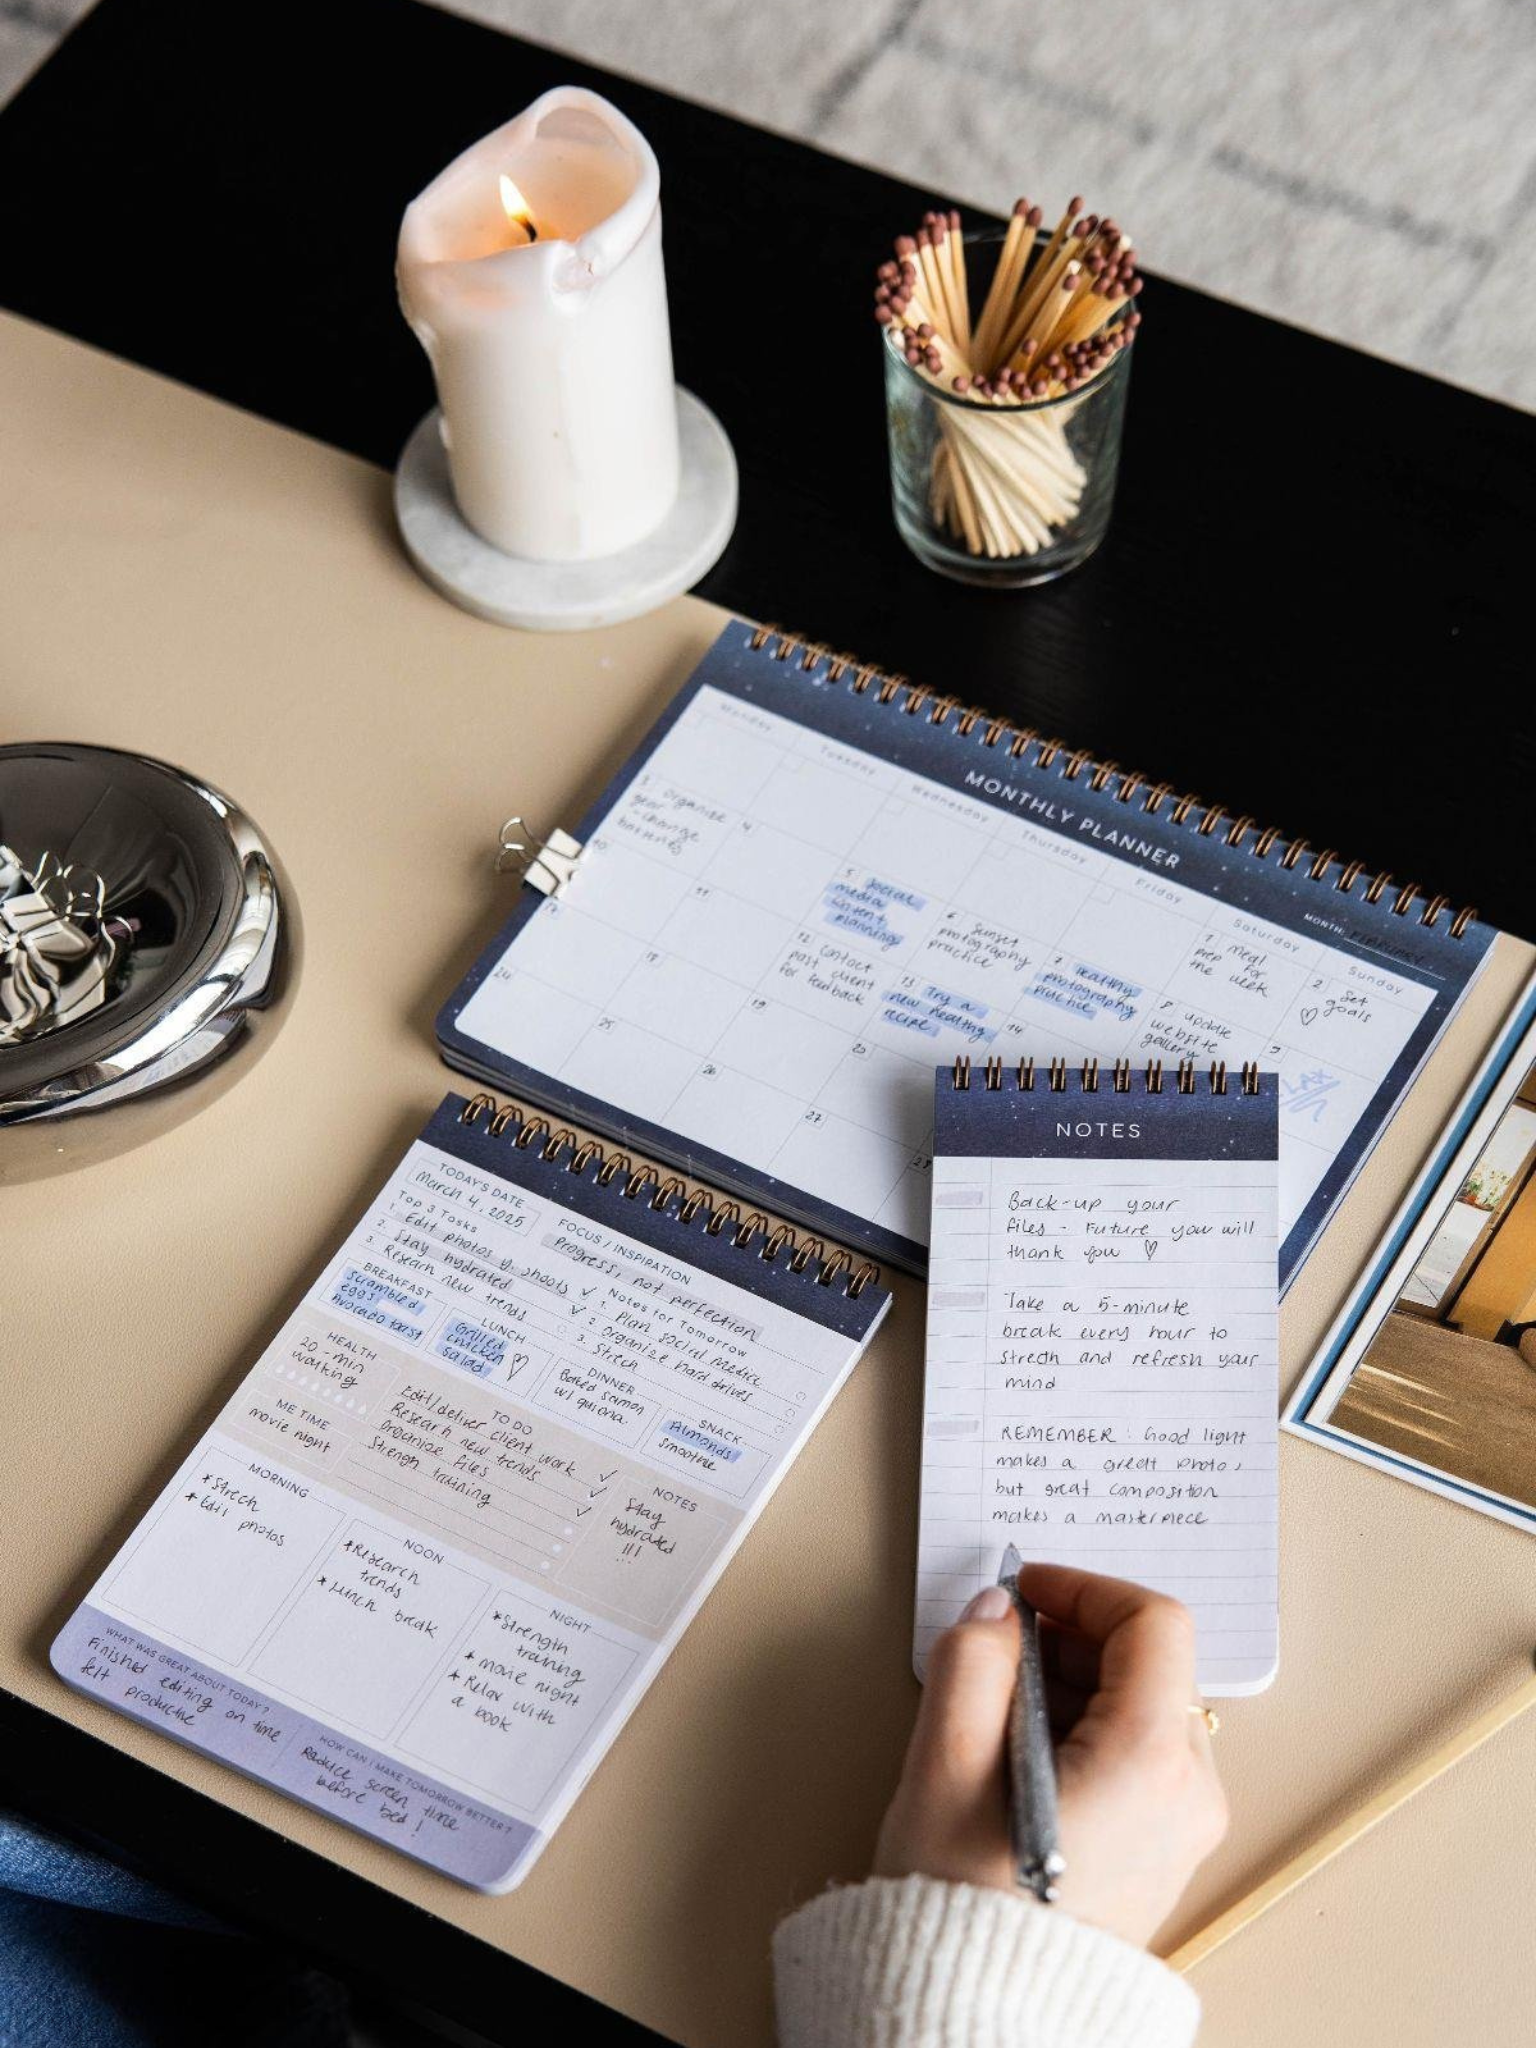 MONTHLY PLANNER
MONTH: February
Monday
Tuesday
Wednesday
Thursday
Friday
Saturday
Sunday
1 meal
prep for
the week
2 Set
goals
3 organise
gear
- change
batteries
4
5 Social
media
content
planning
6 Sunset
photography
practice
7 healthy
photography
practice
8 update
website
gallery
9
10
11
12 Contact
past client
for feedback
13 Try a
new healthy
recipe
14
17
18
19
20
24
25
26
27
28
TODAY'S DATE
March 4, 2025
FOCUS / INSPIRATION
Progress, not perfection
Top 3 Tasks
1. Edit photos y. shoots ✓
2. Stay hydrated ✓
3. Researh new trends
Notes for Tomorrow
1. Plan social media
2. Organize hard drives
3. Strech
BREAKFAST
Scrambled
eggs
Avocado toast
LUNCH
Grilled
chicken
salad
DINNER
Baked samon
w/ quiona.
SNACK
Almonds
smoothie
HEALTH
20-min
walking
ME TIME
movie night
TO DO
Edit/deliver client work ✓
Research new trends ✓
Organize files ✓
Strengh training
NOTES
Stay
hydrated
!!!
MORNING
* Strech
* Edit photos
NOON
* Research
trends
* Lunch break
NIGHT
* Strength
training
* movie night
* Relax with
a book
WHAT WAS GREAT ABOUT TODAY?
Finished editing on time
felt productive
HOW CAN I MAKE TOMORROW BETTER?
Reduce screen time
before bed!
NOTES
Back-up your
files - Future you will
thank you ♡
Take a 5-minute
break every hour to
strecth and refresh your
mind
REMEMBER: Good light
makes a great photo,
but great composition
makes a masterpiece